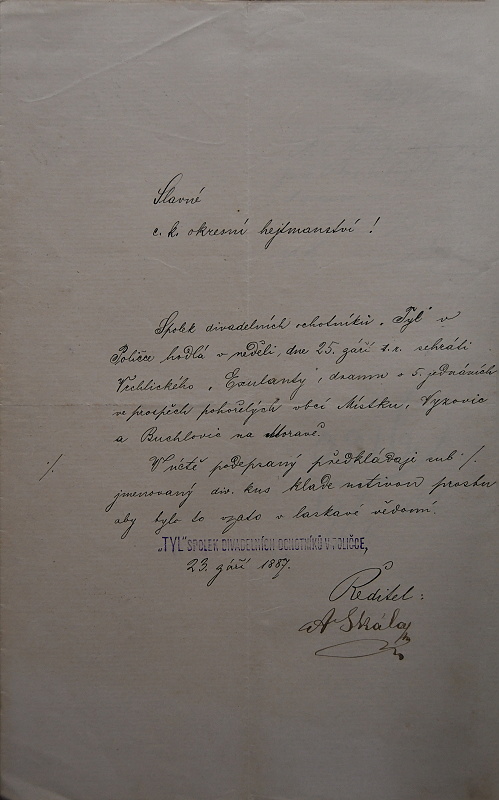 Slavné
c. k. okresní hejtmanství!
Spolek divadelních ochotníků „Tyl" v
Poličce hodlá v neděli, dne 25. září t. r. sehráti
Vrchlického „Exulanty", drama v 5. jednáních
ve prospěch pohořelých obcí Místku, Vyzovic
a Buchlovic na Moravě.
V úctě podepsaný předkládaje sub ./.
./. jmenovaný div. kus klade prosbu
aby bylo to vzato v laskavé vědomí.
„TYL" SPOLEK DIVADELNÍCH OCHOTNÍKŮ V POLIČCE,
23. září 1887.
Ředitel:
A Skála